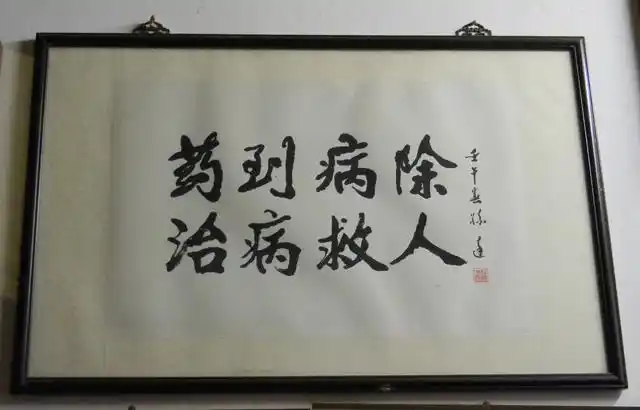 药到病除
治病救人
壬午春孙达